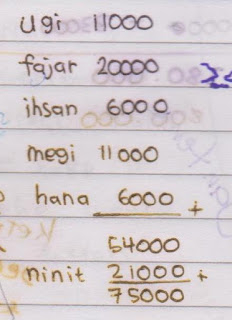 ugi 11000
fajar 20000
ihsan 6000
megi 11000
hana 6000 +
54000
ninit 21000 +
75000